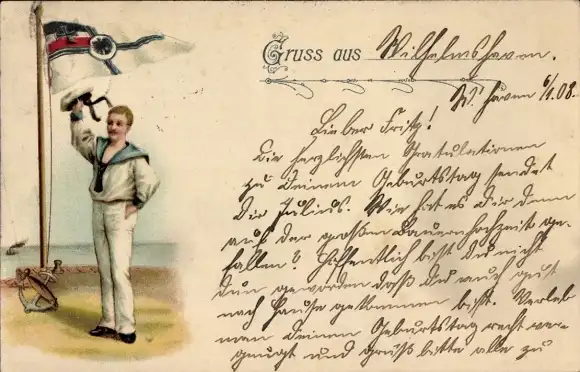 Gruss aus Wilhelmshaven.
W. haven 6/1.08.
Lieber Fritz!
Die herzlichsten Gratulationen
zu Deinem Geburtstag sendet
Dir Julius. Wie hat es Dir denn
auf der großen Bauernhochzeit ge-
fallen? Hoffentlich bist Du nicht
dun geworden daß Du auch gut
nach Hause gekommen bist. Verleb
man Deinen Geburtstag recht ver-
gnügt und grüß bitte alle zu